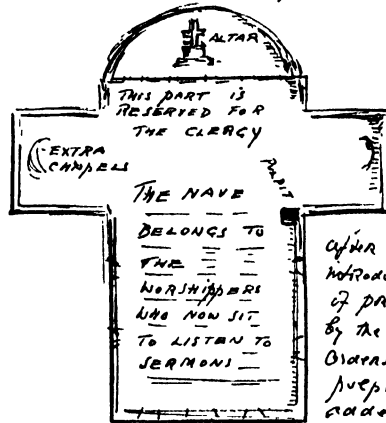 ALTAR
THIS PART IS
RESERVED FOR
THE CLERGY
EXTRA
CHAPELS
PULPIT
THE NAVE
BELONGS TO
THE
WORSHIPPERS
WHO NOW SIT
TO LISTEN TO
SERMONS
after
introdu
of pr
by the
orders
pulp
adde